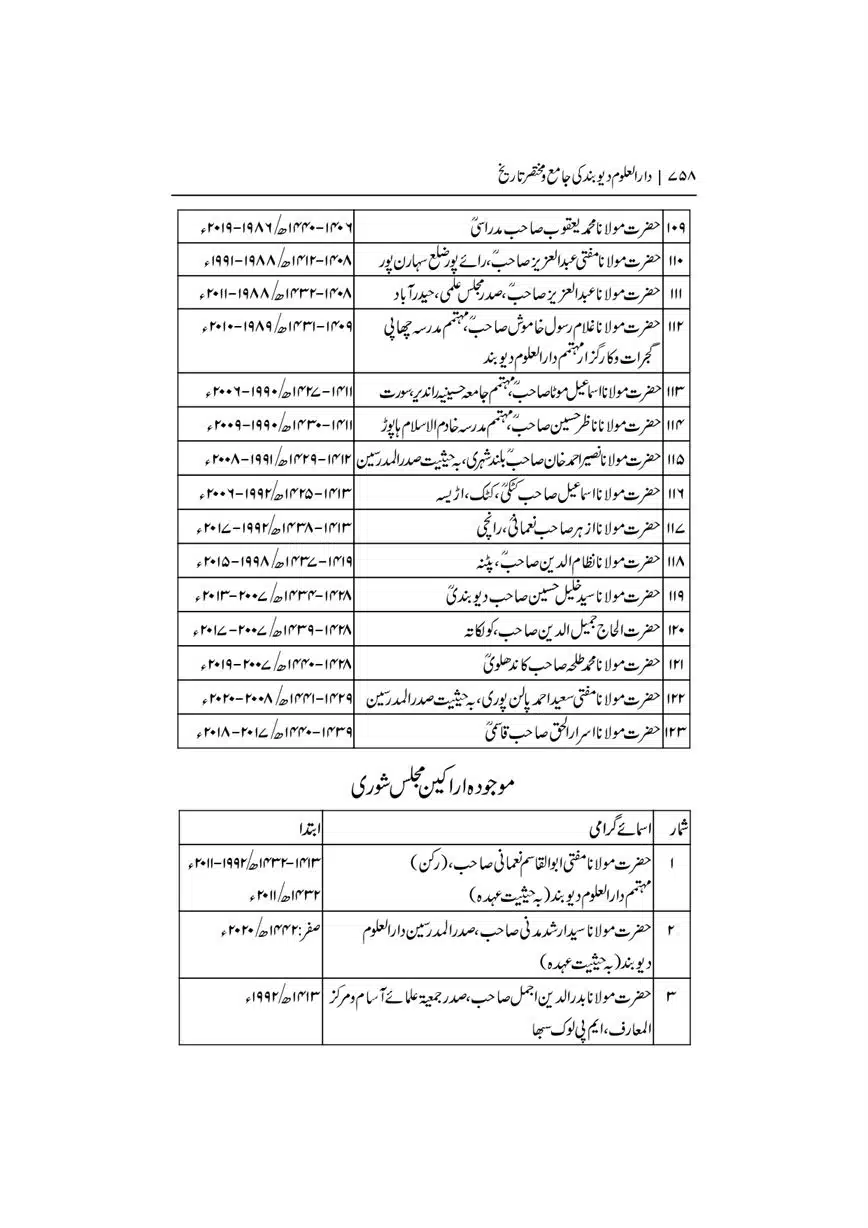 ۷۵۸ | دارالعلوم دیوبند کی جامع و مختصر تاریخ
۱۰۹ حضرت مولانا محمد یعقوب صاحب مدراسیؒ ۱۴۰۶-۱۴۴۰ھ/۱۹۸۶-۲۰۱۹ء
۱۱۰ حضرت مولانا مفتی عبدالعزیز صاحبؒ، رائے پور ضلع سہارن پور ۱۴۰۸-۱۴۱۲ھ/۱۹۸۸-۱۹۹۱ء
۱۱۱ حضرت مولانا عبدالعزیز صاحبؒ، صدر مجلس علمی، حیدرآباد ۱۴۰۸-۱۴۳۲ھ/۱۹۸۸-۲۰۱۱ء
۱۱۲ حضرت مولانا غلام رسول خاموش صاحبؒ، مہتمم مدرسہ چھاپی ۱۴۰۹-۱۴۳۱ھ/۱۹۸۹-۲۰۱۰ء
گجرات و کارگزار مہتمم دارالعلوم دیوبند
۱۱۳ حضرت مولانا اسماعیل موٹا صاحبؒ، مہتمم جامعہ حسینیہ راندیر، سورت ۱۴۱۱-۱۴۲۷ھ/۱۹۹۰-۲۰۰۶ء
۱۱۴ حضرت مولانا ناظر حسین صاحبؒ، مہتمم مدرسہ خادم الاسلام ہاپوڑ ۱۴۱۱-۱۴۳۰ھ/۱۹۹۰-۲۰۰۹ء
۱۱۵ حضرت مولانا نصیر احمد خان صاحبؒ بلند شہری، بہ حیثیت صدر المدرسین ۱۴۱۲-۱۴۲۹ھ/۱۹۹۱-۲۰۰۸ء
۱۱۶ حضرت مولانا اسماعیل صاحب کٹکیؒ، کٹک، اڑیسہ ۱۴۱۳-۱۴۲۵ھ/۱۹۹۲-۲۰۰۶ء
۱۱۷ حضرت مولانا ازہر صاحب نعمانیؒ، رانچی ۱۴۱۳-۱۴۳۸ھ/۱۹۹۲-۲۰۱۷ء
۱۱۸ حضرت مولانا نظام الدین صاحبؒ، پٹنہ ۱۴۱۹-۱۴۳۷ھ/۱۹۹۸-۲۰۱۵ء
۱۱۹ حضرت مولانا سید خلیل حسین صاحب دیوبندیؒ ۱۴۲۸-۱۴۳۴ھ/۲۰۰۷-۲۰۱۳ء
۱۲۰ حضرت الحاج جمیل الدین صاحب، کولکاتہ ۱۴۲۸-۱۴۳۹ھ/۲۰۰۷-۲۰۱۷ء
۱۲۱ حضرت مولانا محمد طلحہ صاحب کاندھلویؒ ۱۴۲۸-۱۴۴۰ھ/۲۰۰۷-۲۰۱۹ء
۱۲۲ حضرت مولانا مفتی سعید احمد پالن پوری، بہ حیثیت صدر المدرسین ۱۴۲۹-۱۴۴۱ھ/۲۰۰۸-۲۰۲۰ء
۱۲۳ حضرت مولانا اسرارالحق صاحب قاسمیؒ ۱۴۳۹-۱۴۴۰ھ/۲۰۱۷-۲۰۱۸ء
موجودہ اراکین مجلس شوریٰ
شمار اسمائے گرامی ابتدا
۱ حضرت مولانا مفتی ابوالقاسم نعمانی صاحب، (رکن) ۱۴۱۳-۱۴۳۲ھ/۱۹۹۲-۲۰۱۱ء
مہتمم دارالعلوم دیوبند (بہ حیثیت عہدہ) ۱۴۳۲ھ/۲۰۱۱ء
۲ حضرت مولانا سید ارشد مدنی صاحب، صدر المدرسین دارالعلوم صفر: ۱۴۴۲ھ/۲۰۲۰ء
دیوبند (بہ حیثیت عہدہ)
۳ حضرت مولانا بدرالدین اجمل صاحب، صدر جمعیۃ علمائے آسام و مرکز ۱۴۱۳ھ/۱۹۹۲ء
المعارف، ایم پی لوک سبھا